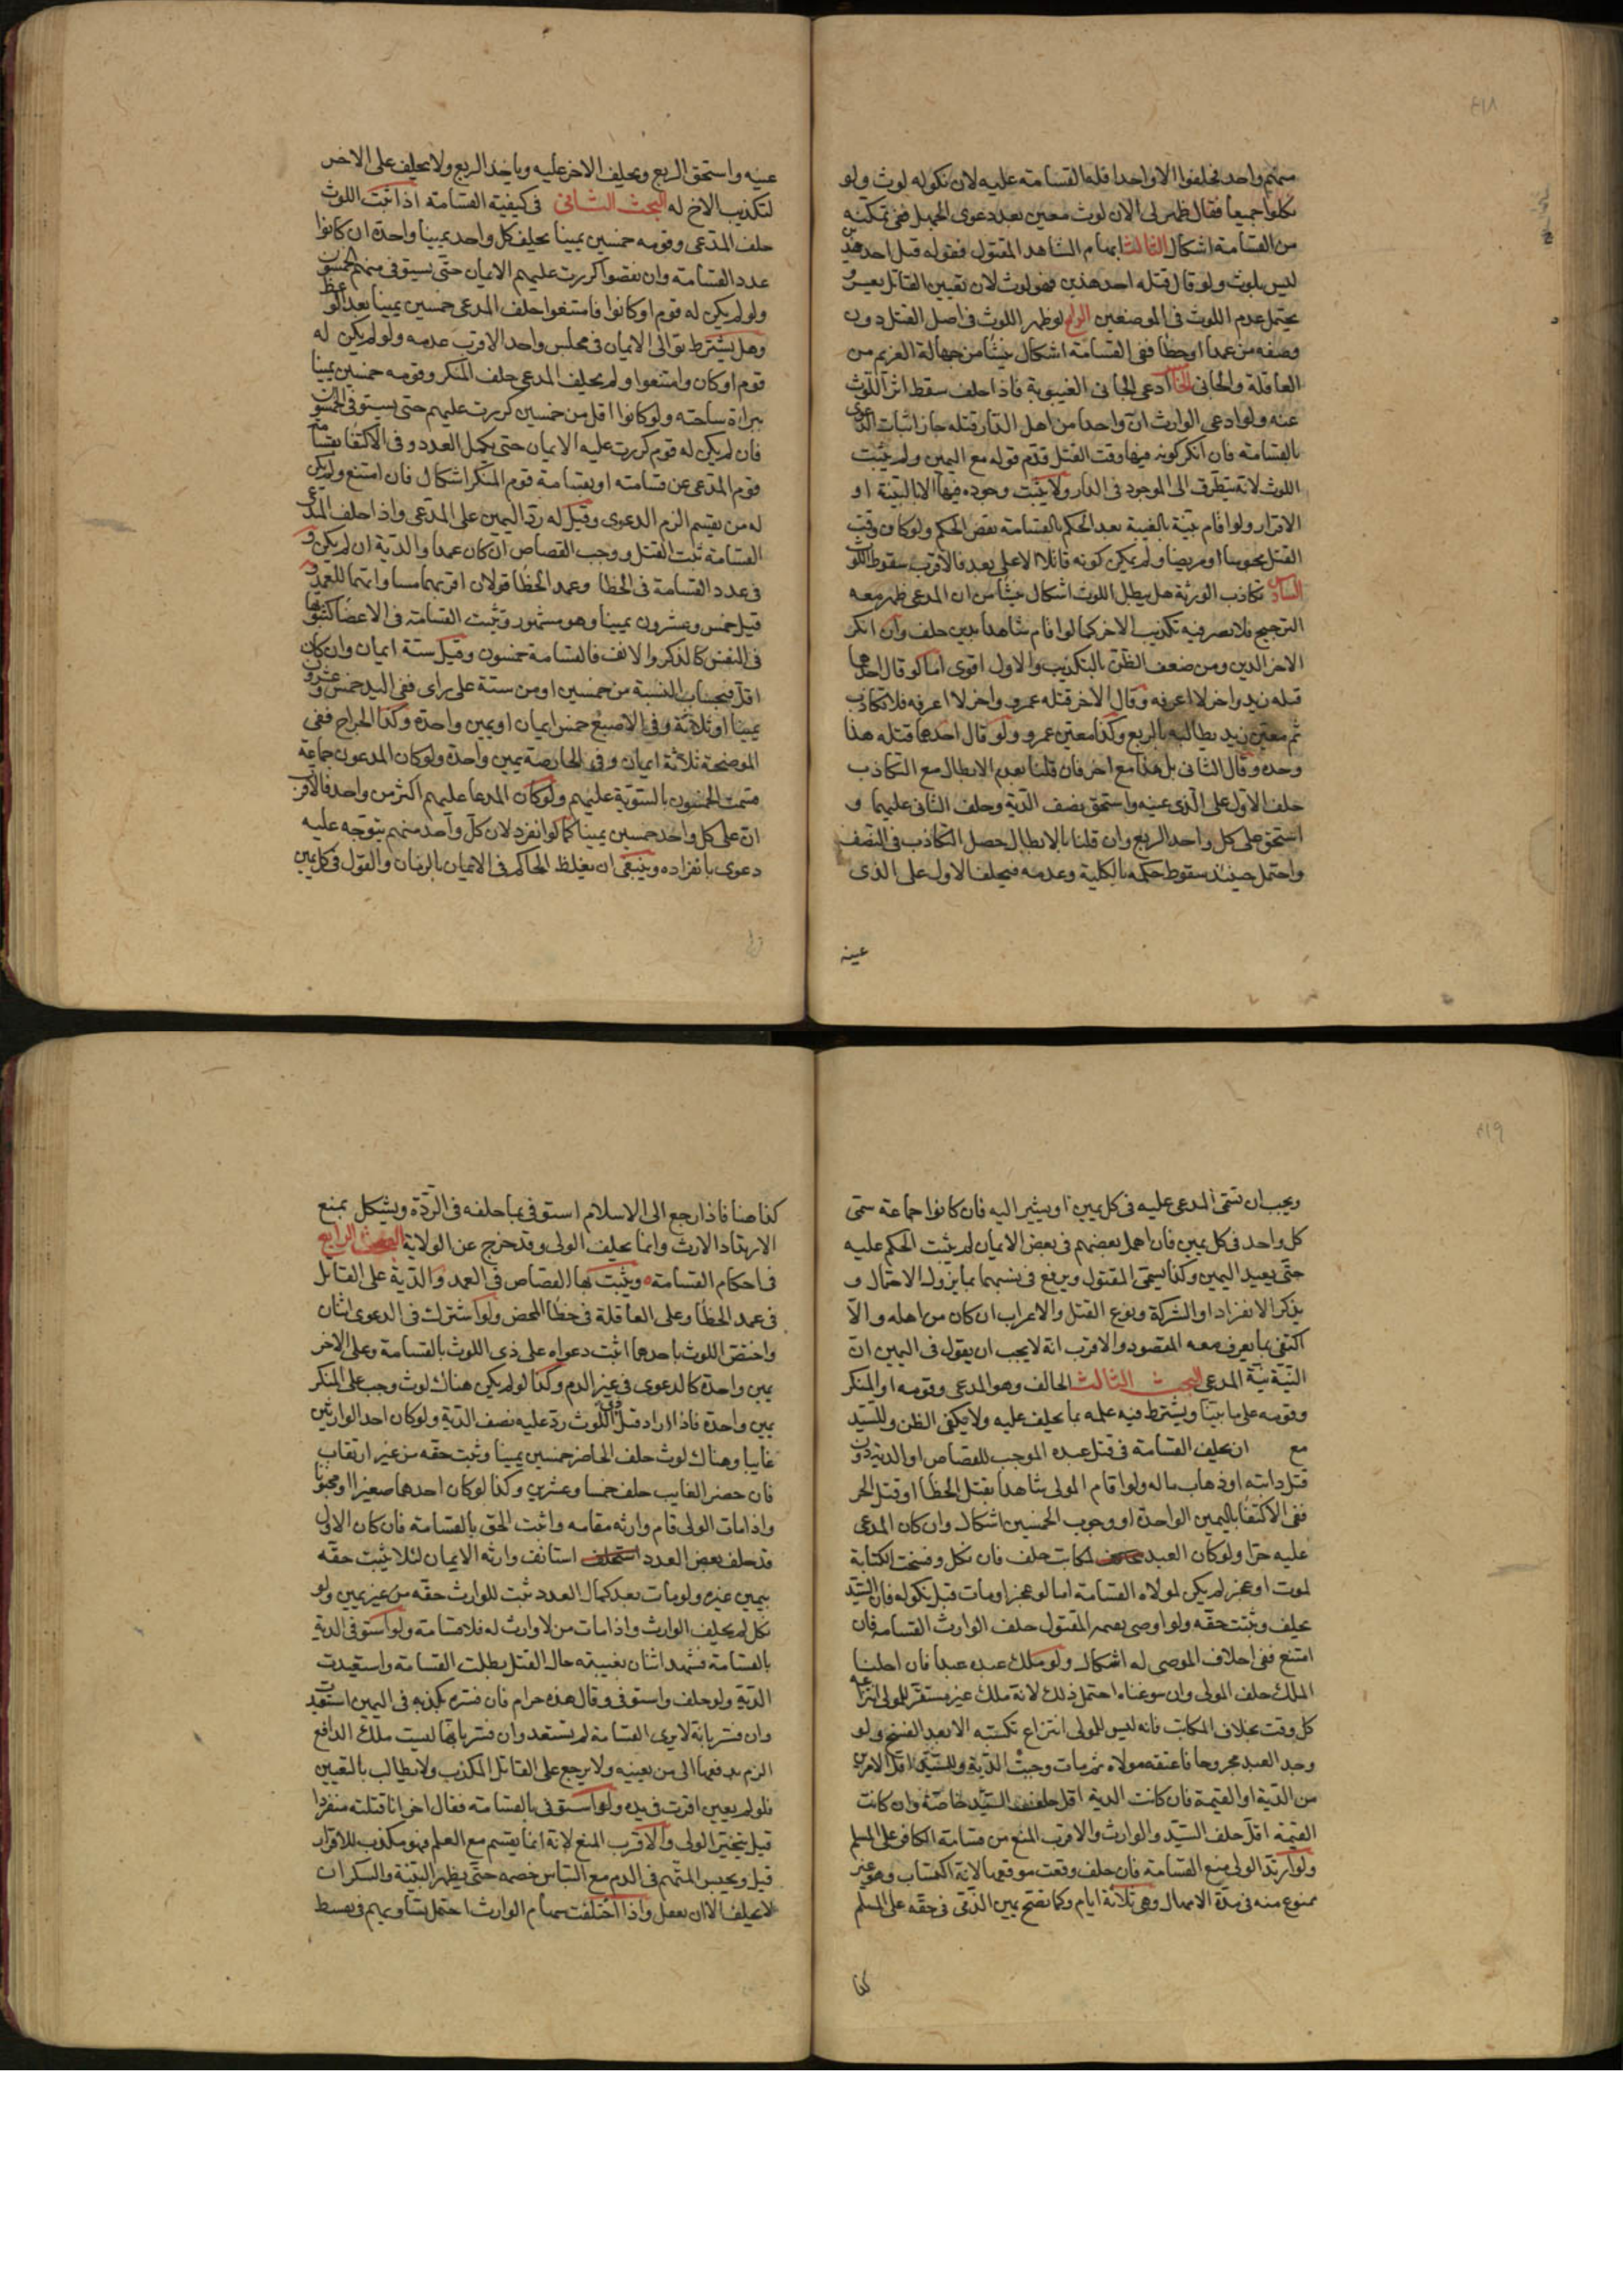 ٤١٨
منهم واحد فحلفوا الا واحدا فله القسامة عليه لان نكوله لوث ولو
نكلوا جميعا فقال ظهر لى الان لوث معين بعد دعوى الجهل ففى تمكينه
من القسامة اشكال الثالث ابهام الشاهد المقتول فقوله قتل احد هذين
ليس بلوث ولو قال قتله احد هذين فهو لوث لان تعيين القاتل يعسر و
يحتمل عدم اللوث فى الموضعين الرابع لو ظهر اللوث فى اصل القتل دون
وصفه من عمد او خطأ ففى القسامة اشكال ينشأ من جهالة الغريم من
العاقلة والجانى الخامس ادعى الجانى الغيبوبة فاذا حلف سقط اثر اللوث
عنه ولو ادعى الوارث ان واحدا من اهل الدار قتله جاز اثبات الدعوى
بالقسامة فان انكر كونه فيها وقت القتل قدم قوله مع اليمين ولم يثبت
اللوث لانه يتطرق الى الموجود فى الدار ولا يثبت وجوده فيها الا بالبينة او
الاقرار ولو اقام بينة بالغيبة بعد الحكم بالقسامة نقض الحكم ولو كان وقت
القتل محبوسا او مريضا ولم يمكن كونه قاتلا الا على بعد فالاقرب سقوط اللوث
السادس تكاذب الورثة هل يبطل اللوث اشكال ينشأ من ان المدعى ظهر معه
الترجيح فلا يضر فيه تكذيب الاخر كما لو اقام شاهدا بدين حلف وان انكر
الاخر الدين ومن ضعف الظن بالتكذيب والاول اقوى اما لو قال احدهما
قتله زيد واخر لا اعرفه وقال الاخر قتله عمرو واخر لا اعرفه فلا تكاذب
ثم معين زيد يطالبه بالربع وكذا معين عمرو ولو قال احدهما قتله هذا
وحده وقال الثانى بل هذا مع اخر فان قلنا بعدم الابطال مع التكاذب
حلف الاول على الذى عينه واستحق نصف الدية وحلف الثانى عليهما و
استحق على كل واحد الربع وان قلنا بالابطال حصل التكاذب فى النصف
واحتمل حينئذ سقوط حكمه بالكلية وعدمه فيحلف الاول على الذى
عينه
عينه واستحق الربع ويحلف الاخر عليه وياخذ الربع ولا يحلف على الاخر
لتكذيب الاخ له البحث الثانى فى كيفية القسامة اذا ثبت اللوث
حلف المدعى وقومه خمسين يمينا يحلف كل واحد يمينا واحدة ان كانوا
عدد القسامة وان نقصوا كررت عليهم الايمان حتى يستوفى منهم الخمسون
ولو لم يكن له قوم او كانوا فامتنعوا حلف المدعى خمسين يمينا بعد الوعظ
وهل يشترط توالى الايمان فى مجلس واحد الاقرب عدمه ولو لم يكن له
قوم او كان وامتنعوا ولم يحلف المدعى حلف المنكر وقومه خمسين يمينا
ببراءة ساحته ولو كانوا اقل من خمسين كررت عليهم حتى يستوفى الخمسون
فان لم يكن له قوم كررت عليه الايمان حتى يكمل العدد وفى الاكتفا بقسامة
قوم المدعى عن قسامته او بقسامة قوم المنكر اشكال فان امتنع ولم يكن
له من يقسم الزم الدعوى وقيل له رد اليمين على المدعى واذا حلف المدعى
القسامة ثبت القتل ووجب القصاص ان كان عمدا والدية ان لم يكن و
فى عدد القسامة فى الخطا وعمد الخطا قولان اقربهما مساواتهما للعمد و
قيل خمس وعشرون يمينا وهو مشهور وتثبت القسامة فى الاعضا كثبوتها
فى النفس كالذكر والانف فالقسامة خمسون وقيل ستة ايمان وان كان
اقل فبحساب النسبة من خمسين او من ستة على راى ففى اليد خمس وعشرون
يمينا او ثلاثة وفى الاصبع خمس ايمان او يمين واحدة وكذا الجراح ففى
الموضحة ثلاثة ايمان وفى الحارصة يمين واحدة ولو كان المدعون جماعة
قسمت الخمسون بالسوية عليهم ولو كان المدعا عليهم اكثر من واحد فالاقرب
ان على كل واحد خمسين يمينا كما لو انفرد لان كل واحد منهم يتوجه عليه
دعوى بانفراده وينبغى ان يغلظ الحاكم فى الايمان بالزمان والقول فى كل يمين
٤١٩
ويجب ان يسمى المدعى عليه فى كل يمين او يشير اليه فان كانوا جماعة سمى
كل واحد فى كل يمين فان اهمل بعضهم فى بعض الايمان لم يثبت الحكم عليه
حتى يعيد اليمين وكذا يسمى المقتول ويرفع فى نسبهما بما يزول الاحتمال و
يذكر الانفراد او الشركة ونوع القتل والاعراب ان كان من اهله والا
اكتفى بما يعرف معه المقصود والاقرب انه لا يجب ان يقول فى اليمين ان
النية نية المدعى البحث الثالث الحالف وهو المدعى وقومه او المنكر
وقومه على ما بينا ويشترط فيه علمه بما يحلف عليه ولا يكفى الظن وللسيد
مع ان يحلف القسامة فى قتل عبده الموجب للقصاص او الدية دون
قتل دابته او ذهاب ماله ولو اقام المولى شاهدا بقتل الخطا او قتل الحر
ففى الاكتفا باليمين الواحدة او وجوب الخمسين اشكال وان كان المدعى
عليه حرا ولو كان العبد لمكاتب حلف فان نكل وفسخت الكتابة
لموت او عجز لم يكن لمولاه القسامة اما لو عجز او مات قبل نكوله فان السيد
يحلف ويثبت حقه ولو اوصى بقيمة المقتول حلف الوارث القسامة فان
امتنع ففى احلاف الموصى له اشكال ولو ملك عبده عبدا فان احلنا
الملك حلف المولى وان سوغناه احتمل ذلك لانه ملك غير مستقر للمولى انتزاعه
كل وقت بخلاف المكاتب فانه ليس للمولى انتزاع تكسبه الا بعد الفسخ ولو
وجد العبد مجروحا فاعتقه مولاه ثم مات وجبت الدية وللسيد اقل الامرين
من الدية او القيمة فان كانت الدية اقل حلف السيد خاصة وان كانت
القيمة اقل حلف السيد والوارث والاقرب المنع من قسامة الكافر على المسلم
ولو ارتد الولى منع القسامة فان حلف وقعت موقعها لانه اكتساب وهو غير
ممنوع منه فى مدة الامهال وهى ثلاثة ايام وكما تصح يمين الذمى فى حقه على المسلم
كذا
كذا هنا فاذا رجع الى الاسلام استوفى بما حلفه فى الردة ويشكل بمنع
الارتداد الارث وانما يحلف الولى وقد خرج عن الولاية البحث الرابع
فى احكام القسامة ويثبت بها القصاص فى العمد والدية على القاتل
فى عمد الخطا وعلى العاقلة فى خطأ المحض ولو اشترك فى الدعوى اثنان
واختص اللوث باحدهما اثبت دعواه على ذى اللوث بالقسامة وعلى الاخر
يمين واحدة كالدعوى فى غير الدم وكذا لو لم يكن هناك لوث وجب على المنكر
يمين واحدة فاذا اراد قتل ذى اللوث رد عليه نصف الدية ولو كان احد الوارثين
غايبا وهناك لوث حلف الحاضر خمسين يمينا وثبت حقه من غير ارتقاب
فان حضر الغايب حلف خمسا وعشرين وكذا لو كان احدهما صغيرا او مجنونا
واذا مات الولى قام وارثه مقامه واثبت الحق بالقسامة فان كان الاول
قد حلف بعض العدد استانف وارثه الايمان لئلا يثبت حقه
بيمين غيره ولو مات بعد كمال العدد ثبت للوارث حقه من غير يمين ولو
نكل لم يحلف الوارث واذا مات من لا وارث له فلا قسامة ولو استوفى الدية
بالقسامة فشهد اثنان بغيبته حال القتل بطلت القسامة واستعيدت
الدية ولو حلف واستوفى وقال هذه حرام فان فسره بكذبه فى اليمين استعيدت
وان فسر بانه لا يرى القسامة لم تستعد وان فسر بانها ليست ملك الدافع
الزم بدفعها الى من يعينه ولا يرجع على القاتل المكذب ولا يطالب بالتعيين
فلو لم يعين اقرت فى يده ولو استوفى بالقسامة فقال اخر انا قتلته منفردا
قيل يتخير الولى والاقرب المنع لانه انما يقسم مع العلم فهو مكذب للاقرار
قيل ويحبس المتهم فى الدم مع التماس خصمه حتى يظهر البينة والسكران
لا يحلف الا ان يعقل واذا اختلفت سهام الوارث احتمل تساويهم فى قسط